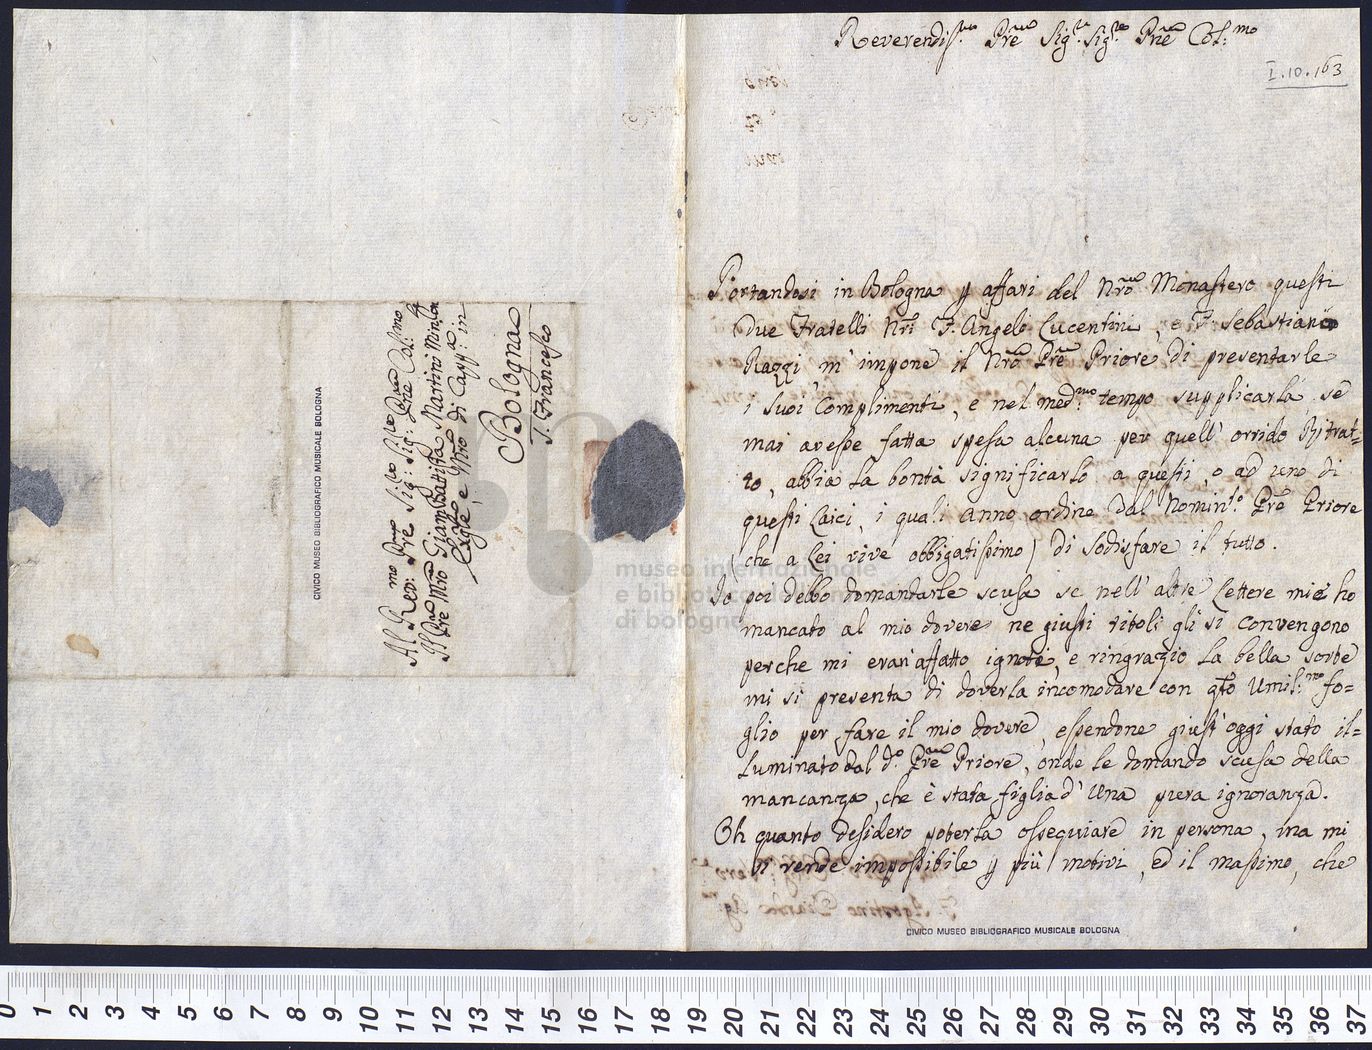 Reverendis.mo Pre Sig.r Sig.re Prne Col:mo
I.10.163
Portandosi in Bologna p affari del Nro Monastero questi
due Fratelli Nri F. Angelo Lucentini, e F. Sebastiano
Raggi m'impone il Nro Pre Priore di presentarle
i suoi complimenti, e nel med.mo tempo supplicarla se
mai avesse fatta spesa alcuna per quell'orrido Ritrat=
to, abbia la bontà significarlo a questi, o ad uno di
questi Laici, i quali anno ordine dal Nomin.to Pre Priore
(che a Lei vive obbligatissimo) di sodisfare il tutto.
Io poi debbo domandarle scusa se nell'altre Lettere mie ho
mancato al mio dovere ne giusti titoli gli si convengono
perche mi eran'affatto ignoti, e ringrazio la bella sorte
mi si presenta di doverla incomodare con qto Umil:mo fo-
glio per fare il mio dovere, essendone giust'oggi stato il=
luminato dal d.o Pre Priore, onde le domando scusa della
mancanza, che è stata figlia d'una pura ignoranza.
Oh quanto desidero poterla ossequiare in persona, ma mi
si rende impossibile p più motivi, ed il massimo, che
CIVICO MUSEO BIBLIOGRAFICO MUSICALE BOLOGNA
Al Rev:mo Pre Sig: Sig: Prne Col:mo
Il Pre Mro Giambattista Martini Min: Con
e Mro di Capp: in
Bologna
S. Francesco
CIVICO MUSEO BIBLIOGRAFICO MUSICALE BOLOGNA
museo internazionale
e biblioteca della musica
di bologna
0 1 2 3 4 5 6 7 8 9 10 11 12 13 14 15 16 17 18 19 20 21 22 23 24 25 26 27 28 29 30 31 32 33 34 35 36 37